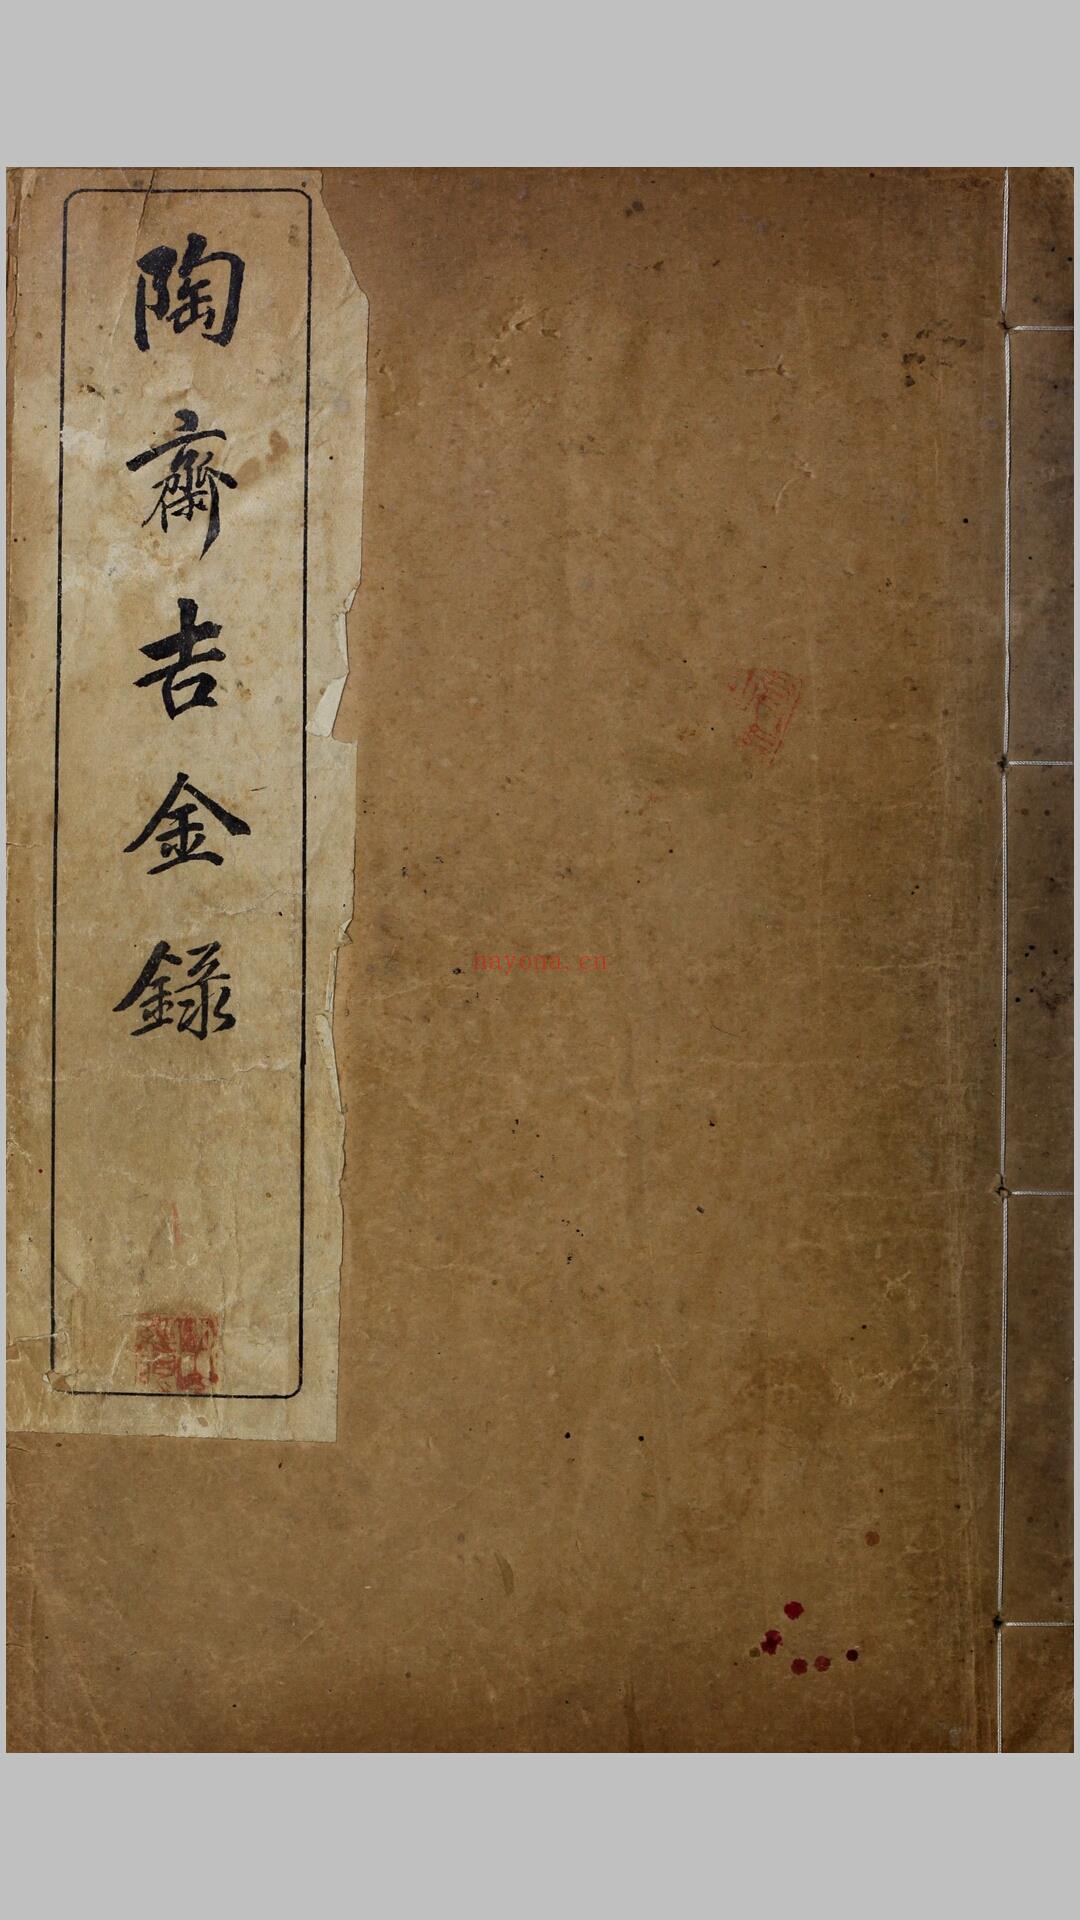 陶齋吉金錄
hayona.cn